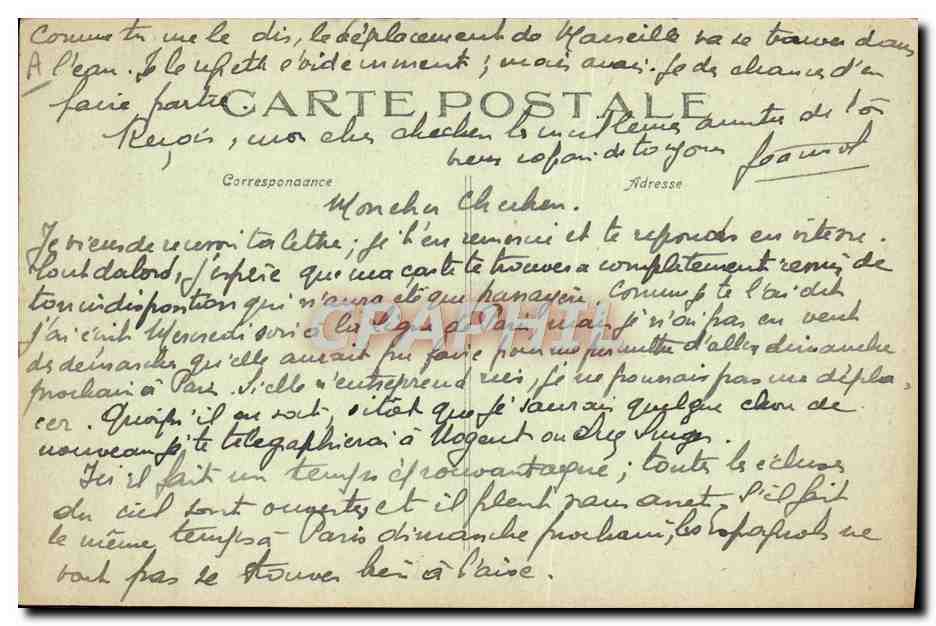 Comme tu me le dis, le déplacement de Marseille va se trouver dans
A l'eau. Je le regrette évidemment; mais avais-je des chances d'en
faire partie.
CARTE POSTALE
Reçois, mon cher chechen les meilleures amitiés de ton
vieux copain de toujours
Correspondance
Adresse
Mon cher Chechen.
Je viens de recevoir ta lettre; je t'en remercie et te reponds en vitesse.
Tout d'abord, j'espère que ma carte te trouvera complètement remis de
ton indisposition qui n'aura été que passagère. Comme je te l'ai dit
j'ai écrit Mercredi soir à la Ligue de Paris mais je n'ai pas eu vent
des demarches qu'elle aurait pu faire pour me permettre d'aller dimanche
prochain à Paris. Si elle n'entreprend rien, je ne pourrais pas me dépla-
cer. Quoiqu'il en soit, sitôt que je saurais quelque chose de
nouveau je te telegraphierai à Nogent ou
Ici il fait un temps épouvantable; toutes les écluses
du ciel sont ouvertes et il pleut sans arret. S'il fait
le même temps à Paris dimanche prochain, les Espagnols ne
vont pas se trouver bien à l'aise.
CPAPHIL